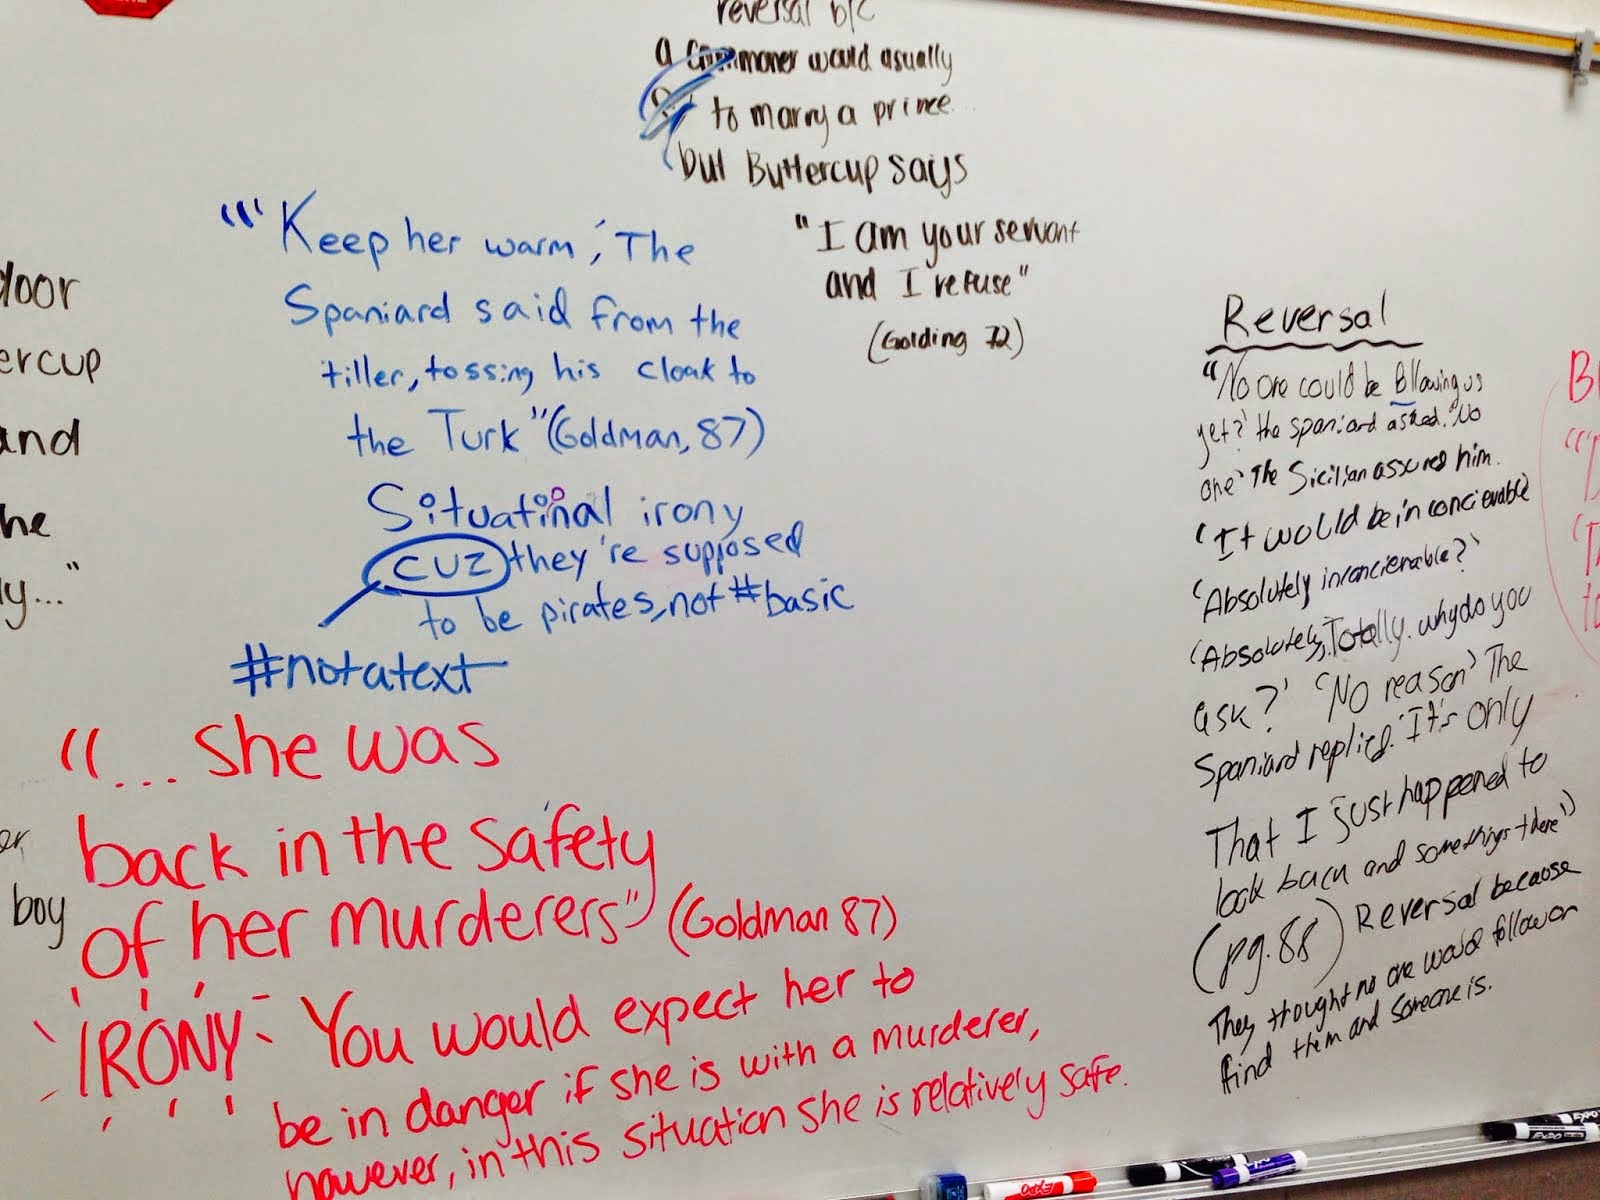 reversal b/c
a commoner would usually
to marry a prince...
but Buttercup says
"I am your servant
and I refuse"
(Golding 72)
"'Keep her warm,' The
Spaniard said from the
tiller, tossing his cloak to
the Turk" (Goldman, 87)
Situational irony
cuz they're supposed
to be pirates, not #basic
#notatext
"... she was
back in the safety
of her murderers" (Goldman 87)
IRONY- You would expect her to
be in danger if she is with a murderer,
however, in this situation she is relatively safe.
Reversal
"No one could be following us
yet? the spaniard asked. 'No
one' The Sicilian assured him.
'It would be inconcievable'
'Absolutely inconcievable?'
'Absolutely, Totally. why do you
ask?' 'No reason' The
Spaniard replied. 'It's only
That I just happened to
look back and somethings there'"
(pg. 88) Reversal because
They thought no one would follow or
find them and someone is.
door
ercup
and
he
ly..."
er
boy
EXPO
EXPO
EXPO